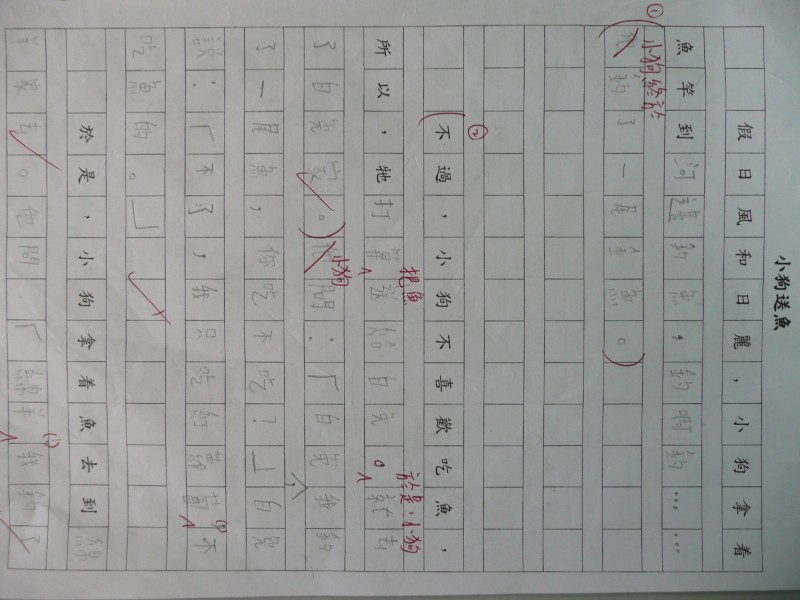 小狗送魚
假日風和日麗，小狗拿着
魚竿到河邊釣魚，釣啊釣……
① 小狗終於
他釣了一尾金魚。
②
不過，小狗不喜歡吃魚，
把魚 於是，小狗
所以，牠打算送給白兔。就去
小狗
了白兔家。他問：「白兔我釣
了一尾魚，你吃不吃？」白兔
說：「不了，我只吃紅蘿蔔不
吃魚的。」
於是，小狗拿着魚去到綿
羊家去。他問：「綿羊我釣了